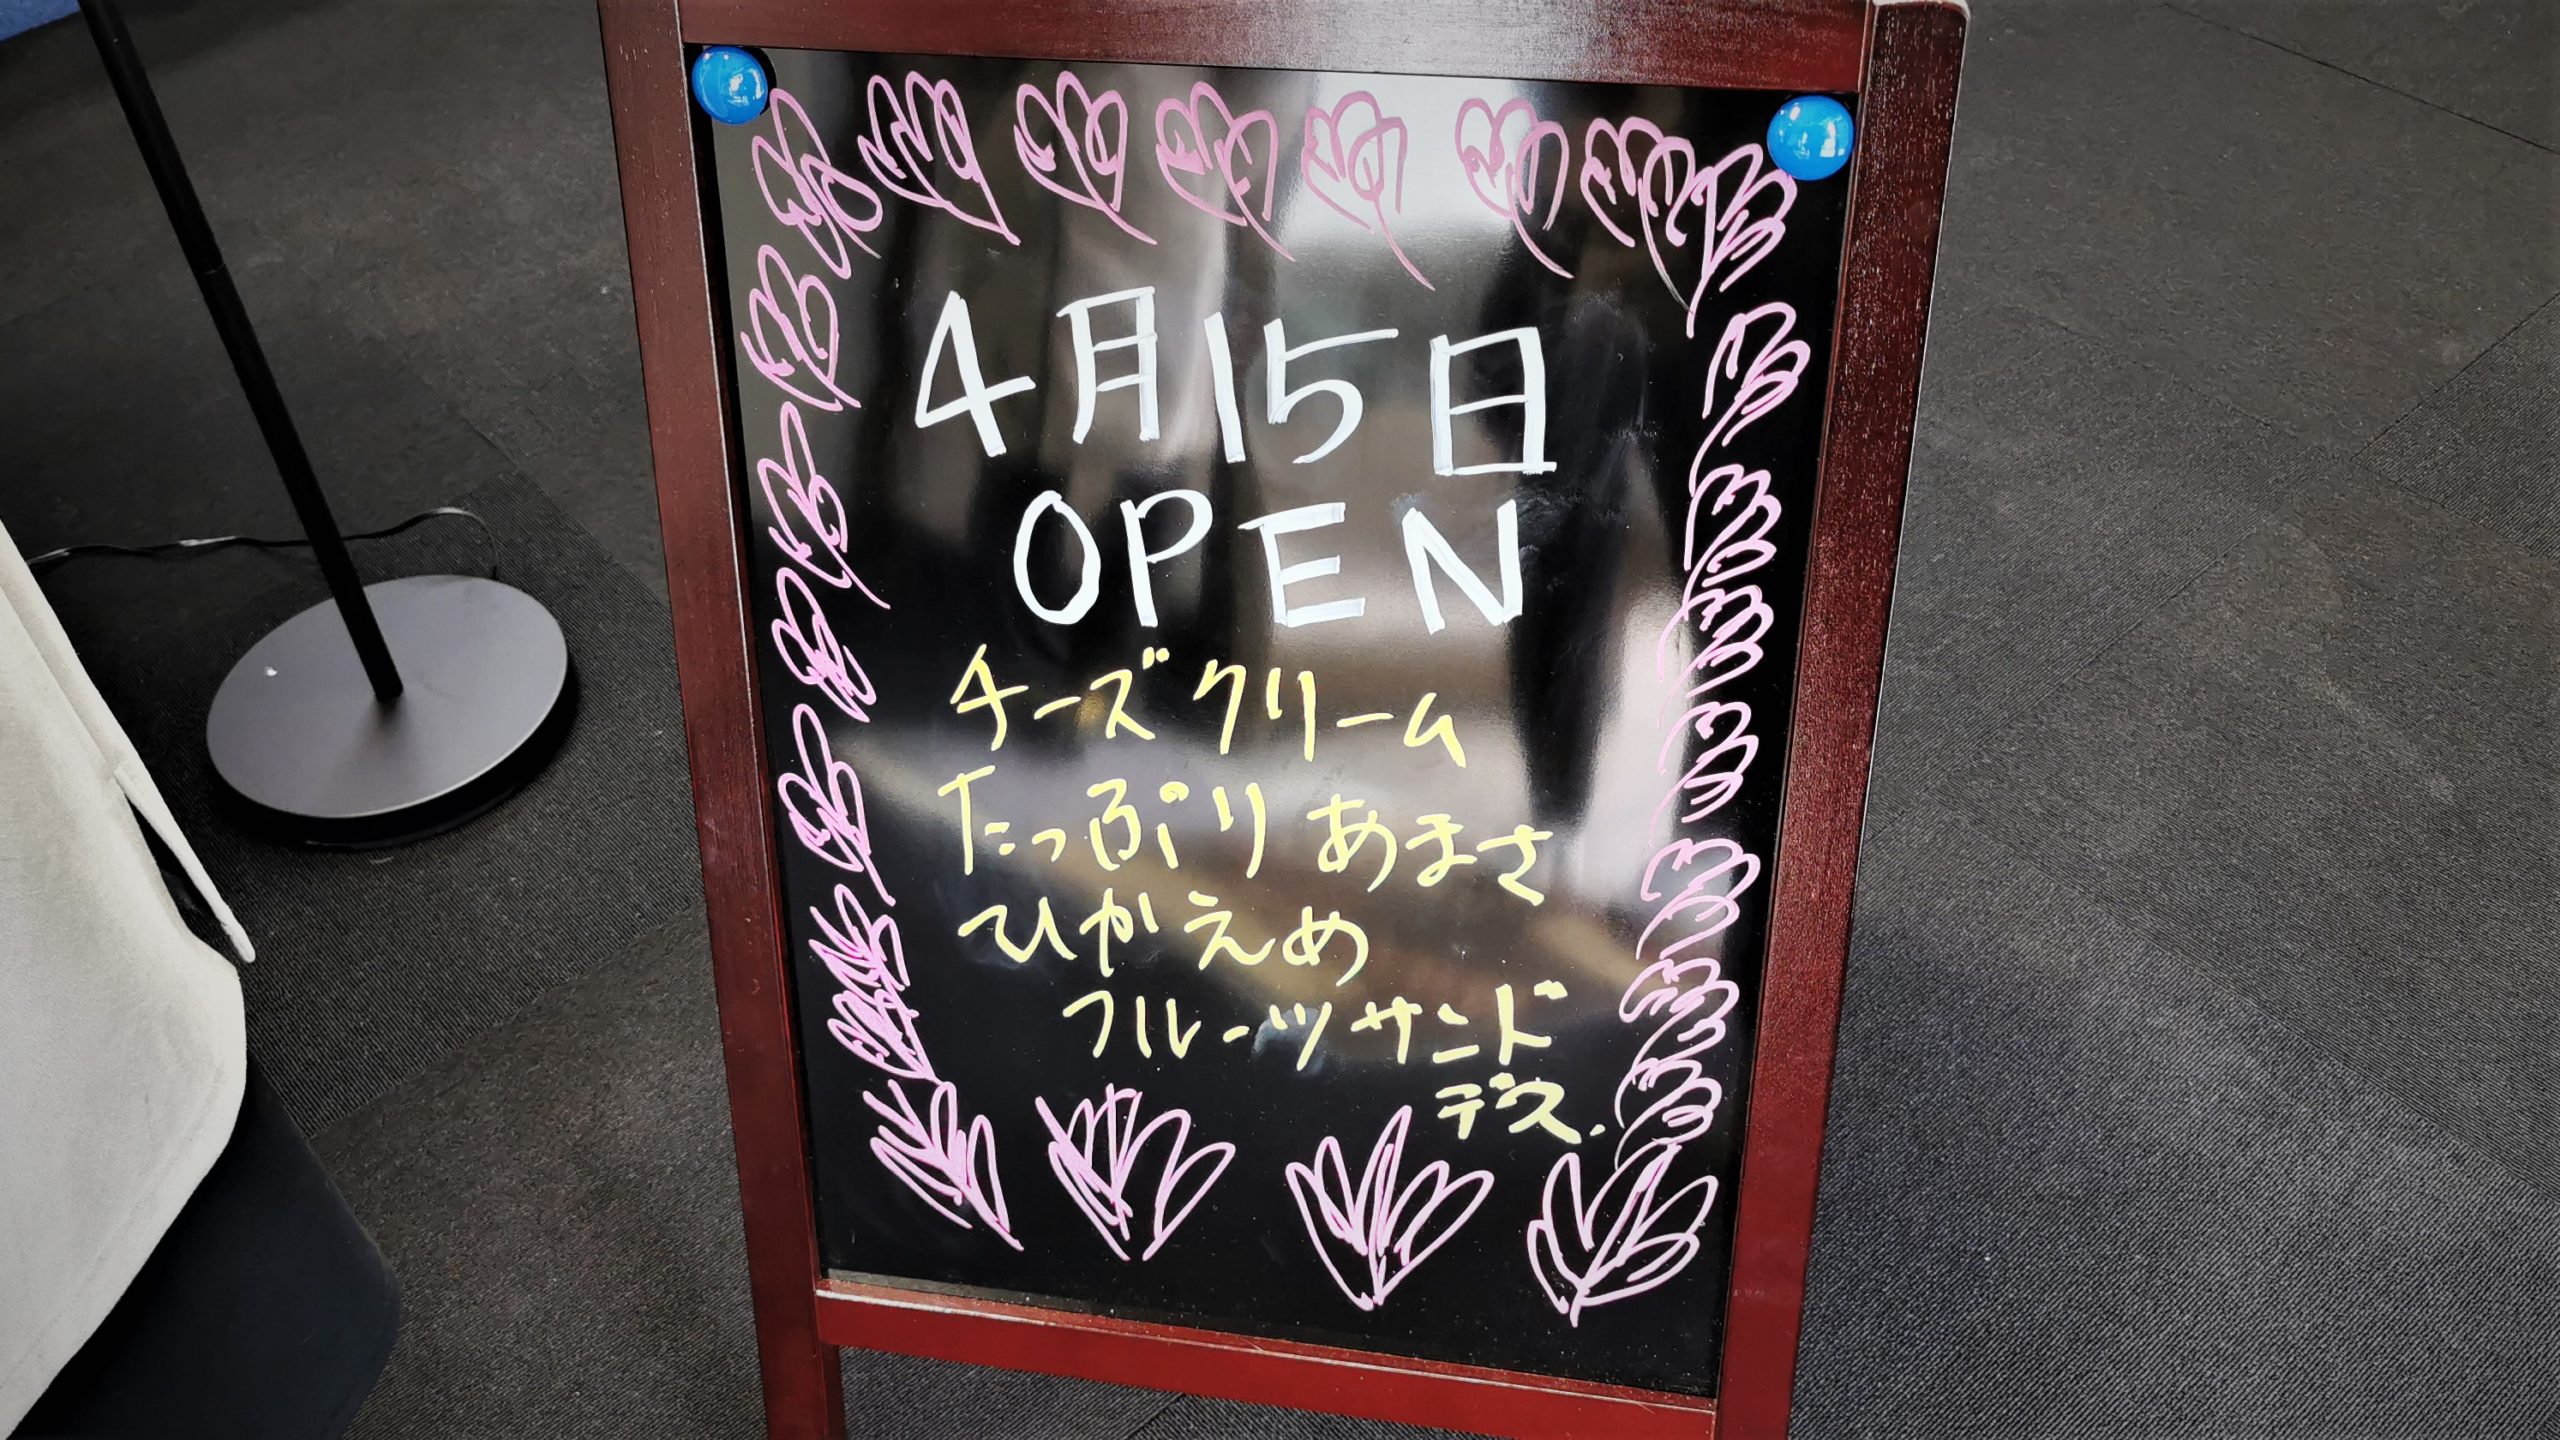 4月15日
OPEN
チーズクリーム
たっぷり あまさ
ひかえめ
フルーツサンド
デス.